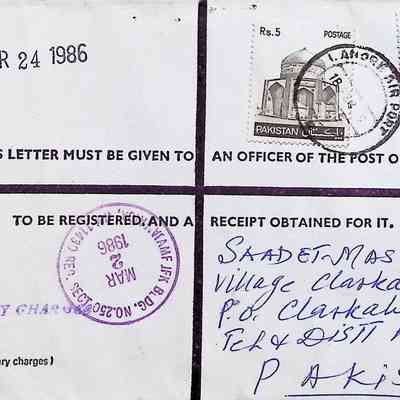 R 24 1986
Rs.5 POSTAGE
PAKISTAN
LAHORE AIR PORT
18
S LETTER MUST BE GIVEN TO AN OFFICER OF THE POST O
TO BE REGISTERED, AND A RECEIPT OBTAINED FOR IT.
JFK BLDG. NO. 250
MAR
2
1986
REG.
Y CHARGES
ery charges)
SAADET-MAS
Village Claskal
P.O. Claskal
Teh & DISTT
PAKIS